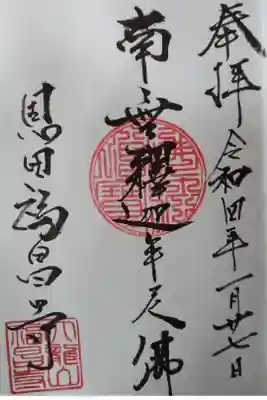 奉拝 令和四年一月廿七日
南無釋迦牟尼佛
恩田福昌寺